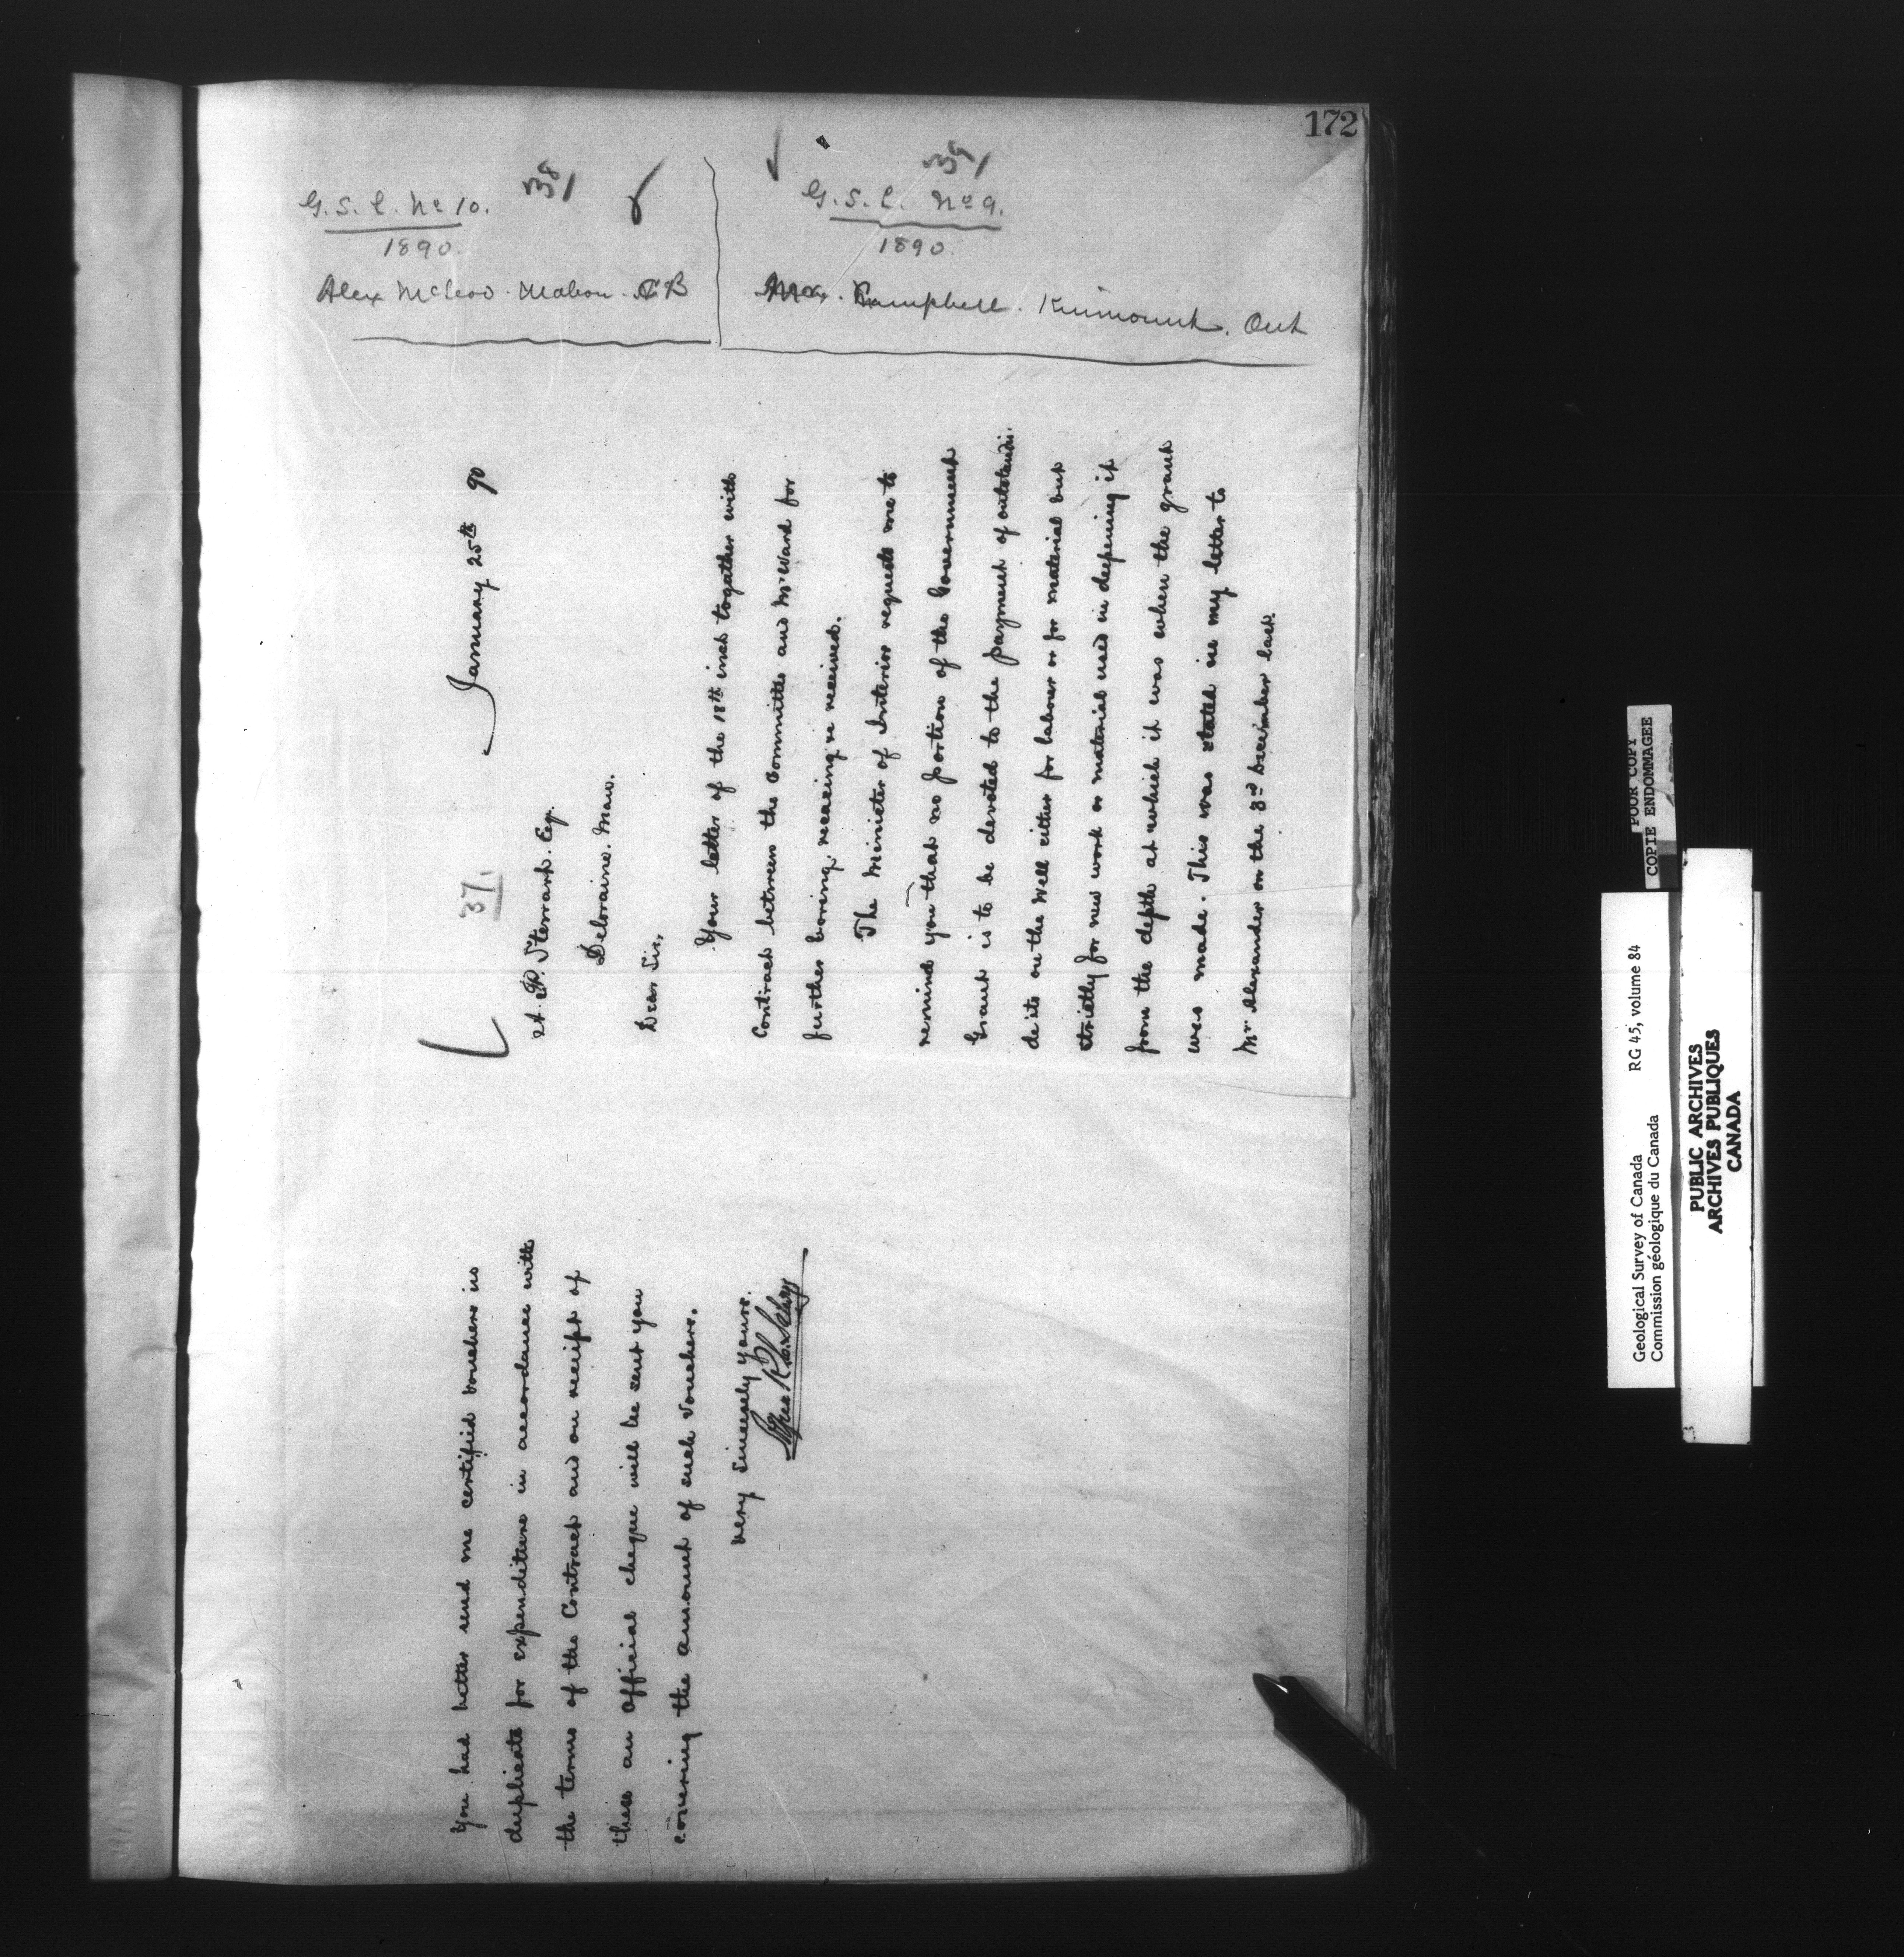 172
38/
G. S. C. No 10.
1890.
Alex McLeod. Mabou. C B
39/
G. S. C. No 9.
1890.
Campbell. Kinmount. Ont
37.
January 25th 90
A. P. Stewart. Esq.
Deloraine. Man.
Dear Sir,
Your letter of the 18th inst togather with
Contract between the Committee and Mr Ward for
further boring, reaming &c received.
The Minister of Interior requests me to
remind you that no portion of the Government
Grant is to be devoted to the payment of outstandi.
de'ts on the Well either for labour or for material but
strictly for new work or material used in deepening it
from the depth at which it was when the grant
was made. This was stated in my letter to
Mr Alexander on the 3rd December last.
You had better send me certified vouchers in
duplicate for expenditure in accordance with
the terms of the Contract and on receipt of
these an Official cheque will be sent you
covering the amount of such Vouchers.
Very Sincerely Yours.
Alfred R. C. Selwyn
POOR COPY
COPIE ENDOMMAGEE
Geological Survey of Canada RG 45, volume 84
Commission géologique du Canada
PUBLIC ARCHIVES
ARCHIVES PUBLIQUES
CANADA